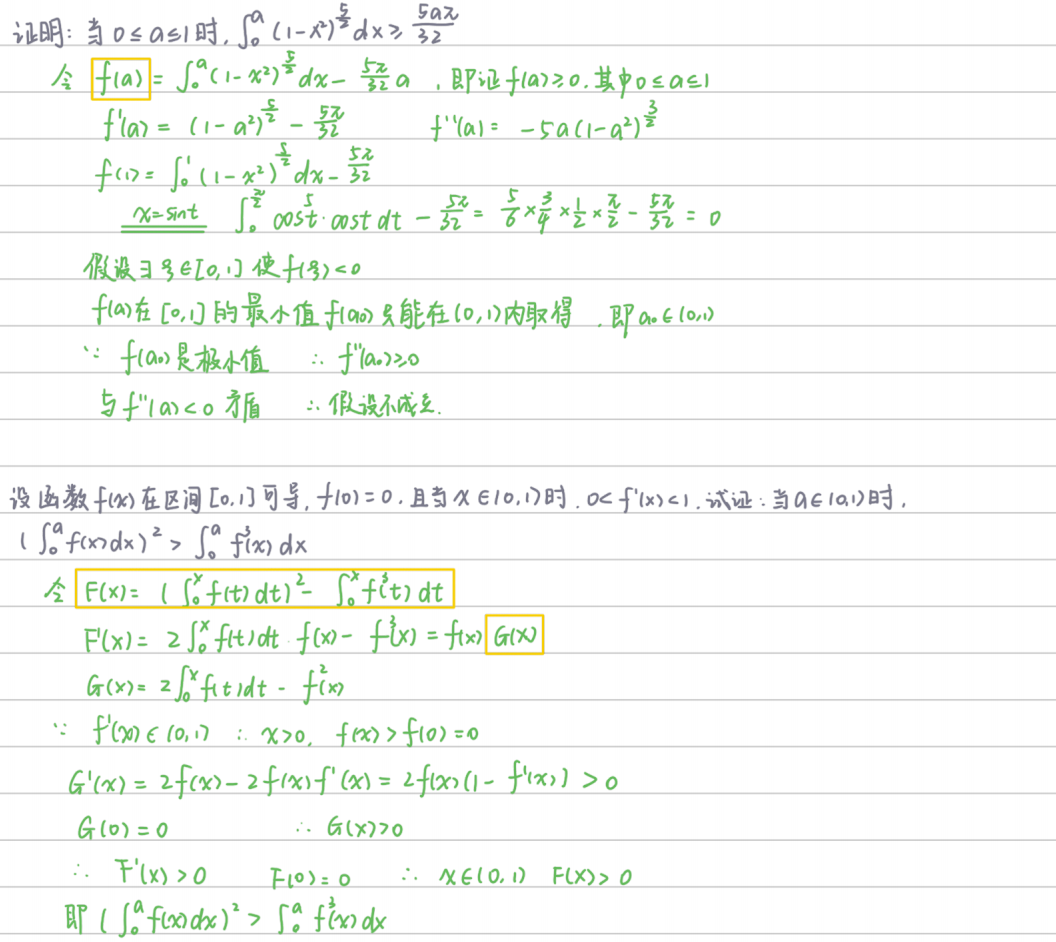 证明：当 0≤a≤1时，∫₀ᵃ (1-x²)^(5/2) dx ≥ 5aπ/32
令 f(a) = ∫₀ᵃ (1-x²)^(5/2) dx - 5π/32 a ，即证 f(a)≥0，其中 0≤a≤1
f'(a) = (1-a²)^(5/2) - 5π/32 f''(a) = -5a(1-a²)^(3/2)
f(1) = ∫₀¹ (1-x²)^(5/2) dx - 5π/32
x=sint ∫₀^(π/2) cos⁵t·cost dt - 5π/32 = 5/6 × 3/4 × 1/2 × π/2 - 5π/32 = 0
假设∃ξ∈[0,1] 使 f(ξ)<0
f(a)在[0,1]的最小值 f(a₀)只能在(0,1)内取得，即 a₀∈(0,1)
∵ f(a₀)是极小值 ∴ f''(a₀)≥0
与 f''(a)<0 矛盾 ∴ 假设不成立.
设函数 f(x) 在区间[0,1]可导，f(0)=0，且当 x∈(0,1)时，0<f'(x)<1，试证：当 a∈(0,1)时，
(∫₀ᵃ f(x)dx)² > ∫₀ᵃ f³(x) dx
令 F(x) = (∫₀ˣ f(t) dt)² - ∫₀ˣ f³(t) dt
F'(x) = 2∫₀ˣ f(t)dt · f(x) - f³(x) = f(x) G(x)
G(x) = 2∫₀ˣ f(t)dt - f²(x)
∵ f'(x)∈(0,1) ∴ x>0, f(x)>f(0)=0
G'(x) = 2f(x) - 2f(x)f'(x) = 2f(x)(1-f'(x)) > 0
G(0)=0 ∴ G(x)>0
∴ F'(x)>0 F(0)=0 ∴ x∈(0,1) F(x)>0
即 (∫₀ᵃ f(x)dx)² > ∫₀ᵃ f³(x) dx